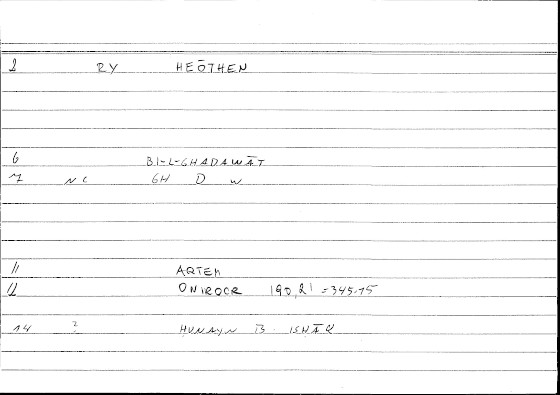 2 RY HEŌTHEN
6 BI-L-GHADAWĀT
7 NC GH D W
11 ARTEM
12 ONIROCR 190,21 = 345.15
14 2 HUNAYN B ISHĀQ